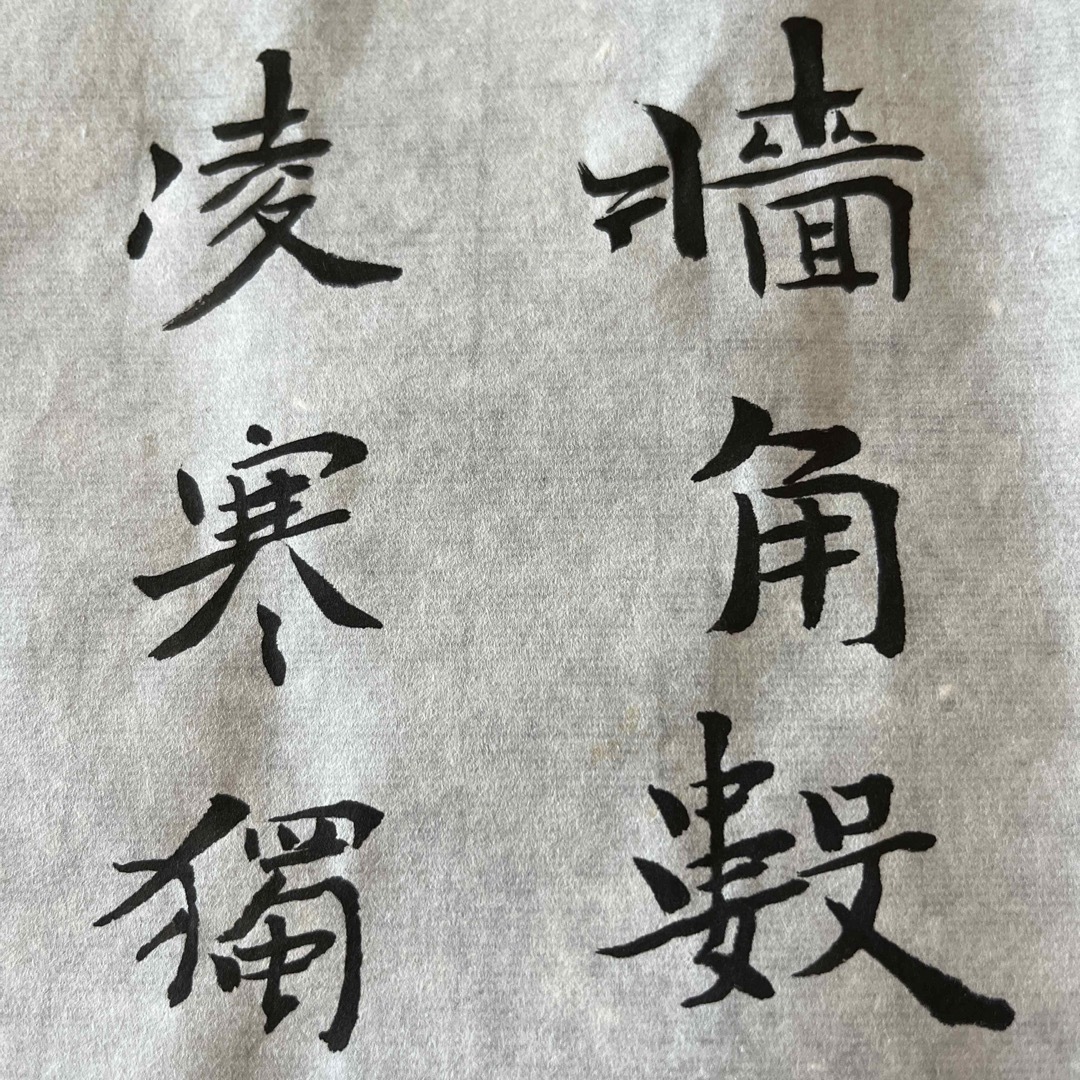 墻角數
凌寒獨